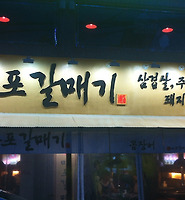 포갈매기
삼겹살, 주
돼지
포갈매기